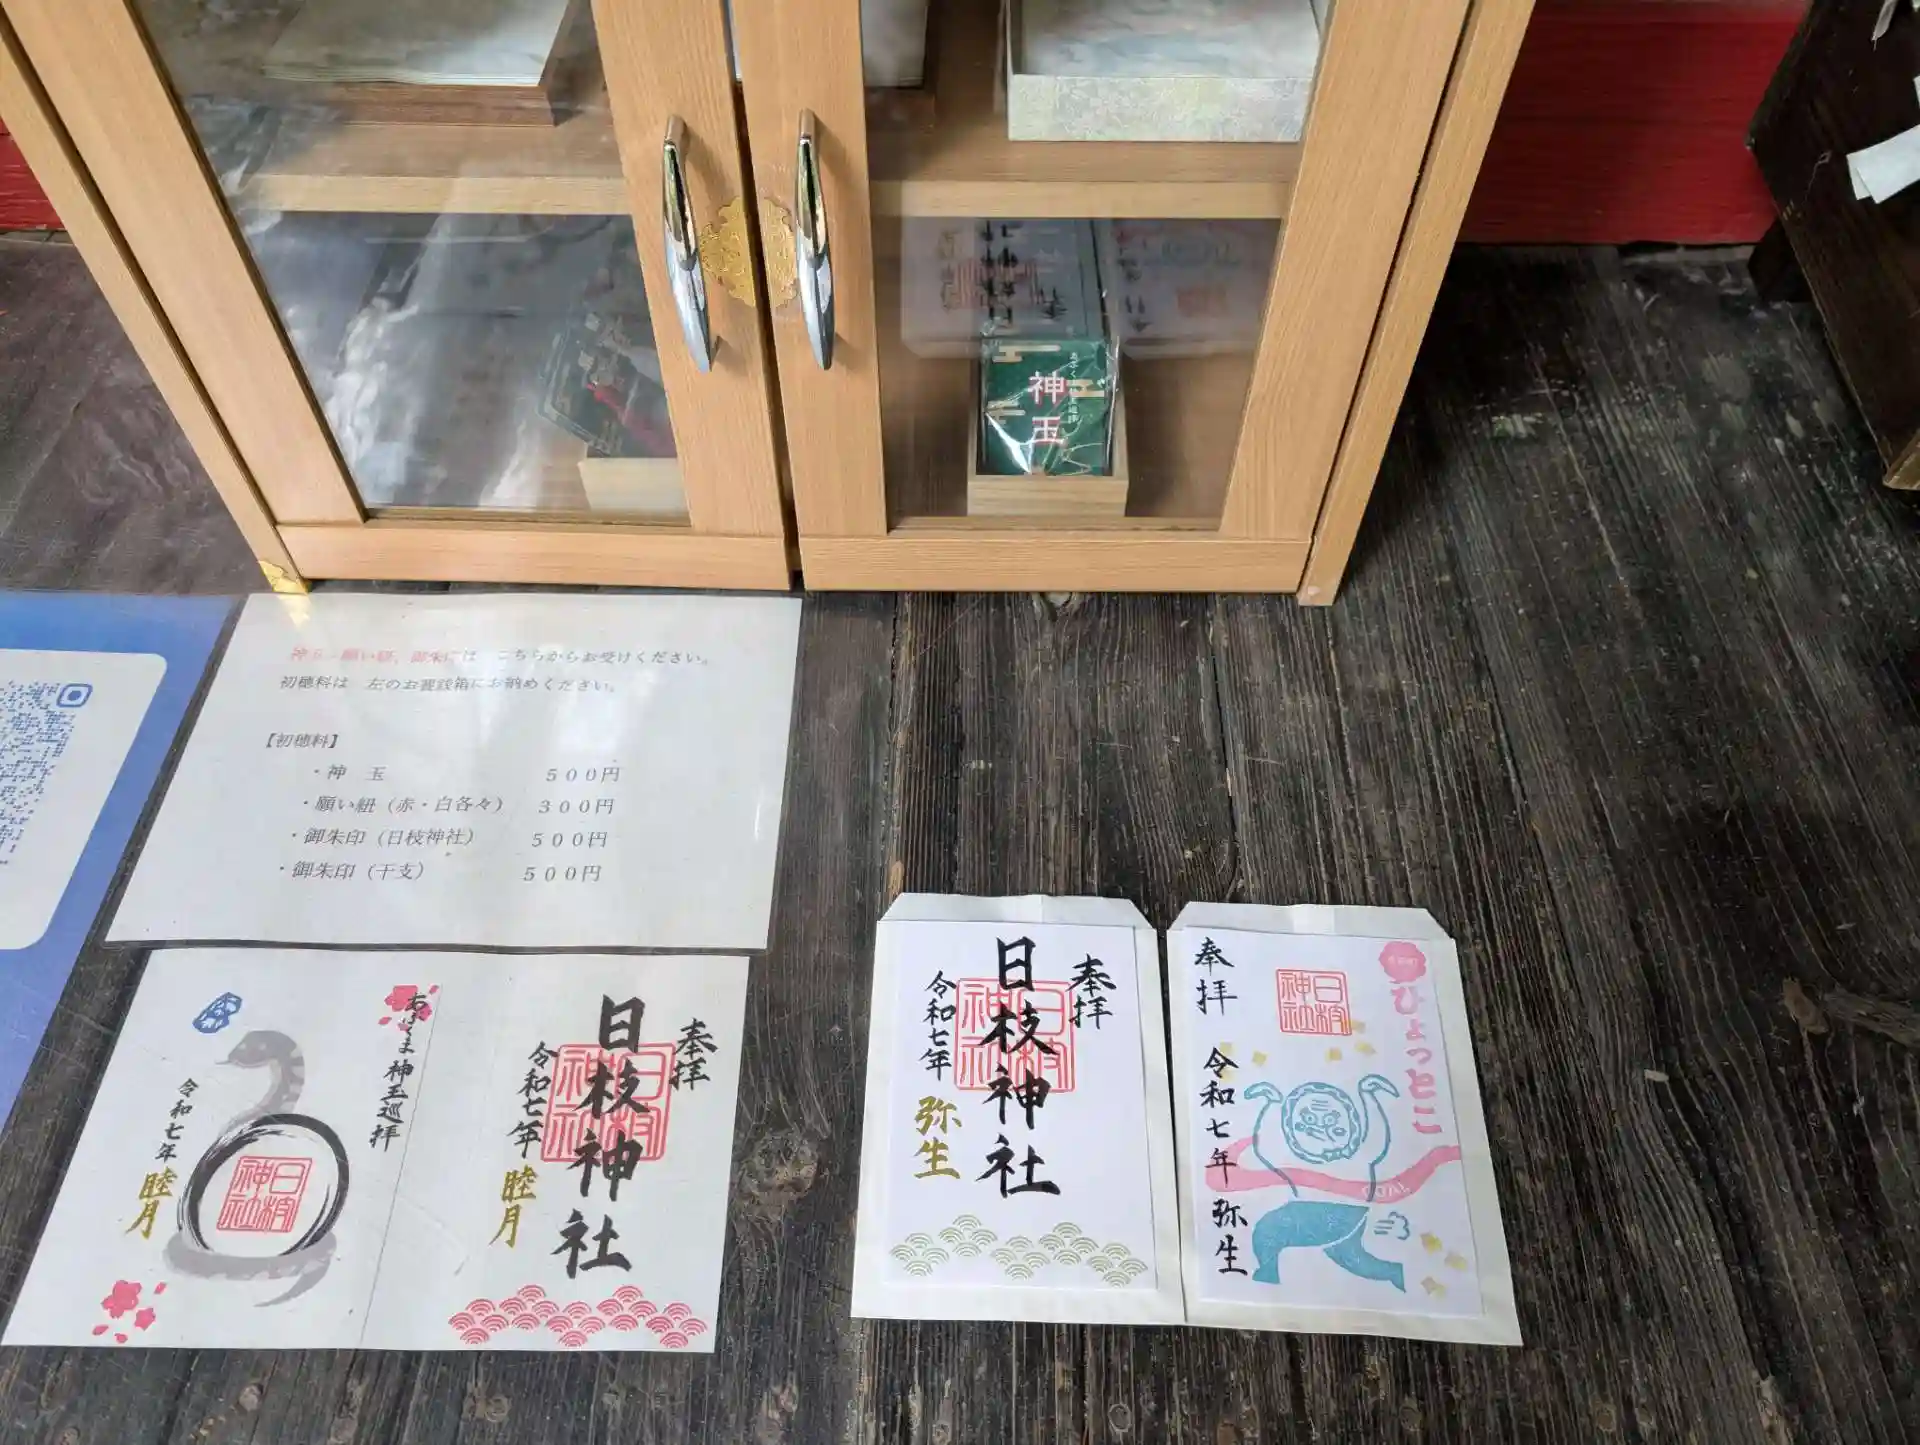 神玉
神玉、願い紐、御朱印は こちらからお受けください。
初穂料は 左のお賽銭箱にお納めください。
【初穂料】
・神 玉 500円
・願い紐（赤・白各々） 300円
・御朱印（日枝神社） 500円
・御朱印（干支） 500円
あぶくま神玉巡拝
日枝神社
令和七年 睦月
奉拝
日枝神社
日枝神社
令和七年 睦月
奉拝
日枝神社
日枝神社
令和七年 弥生
ひょっとこ
日枝神社
奉拝 令和七年 弥生
GOAL